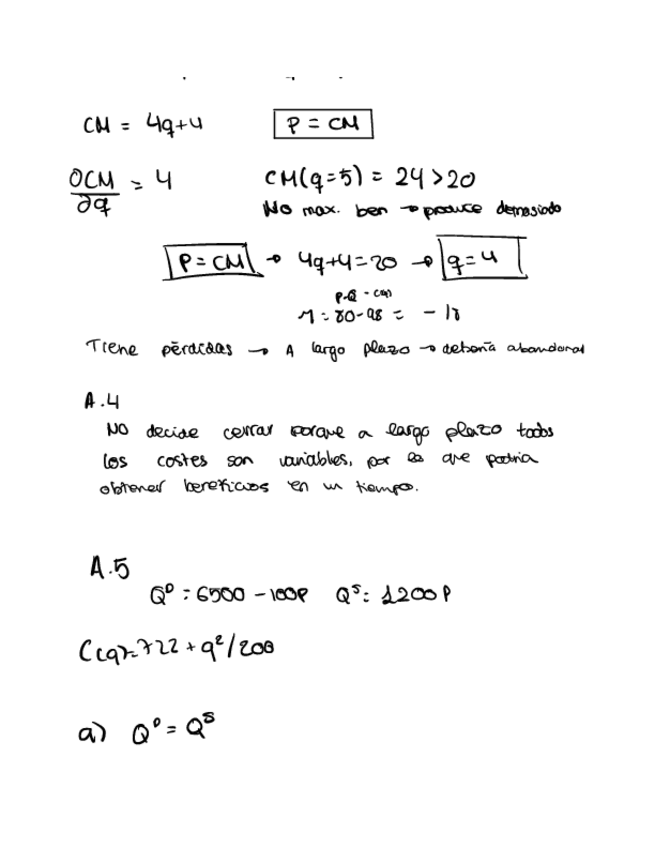 CM = 4q+4 P = CM
∂CM/∂q = 4 CM(q=5) = 24 > 20
No max. ben → produce demasiado
P = CM → 4q+4=20 → q=4
P·Q - C(q)
π = 80-98 = -18
Tiene pérdidas → A largo plazo → debería abandonar
A.4
No decide cerrar porque a largo plazo todos
los costes son variables, por lo que podría
obtener beneficios en un tiempo.
A.5
Qᴰ = 6500 - 100P Qˢ = 1200P
C(q) = 722 + q²/200
a) Qᴰ = Qˢ